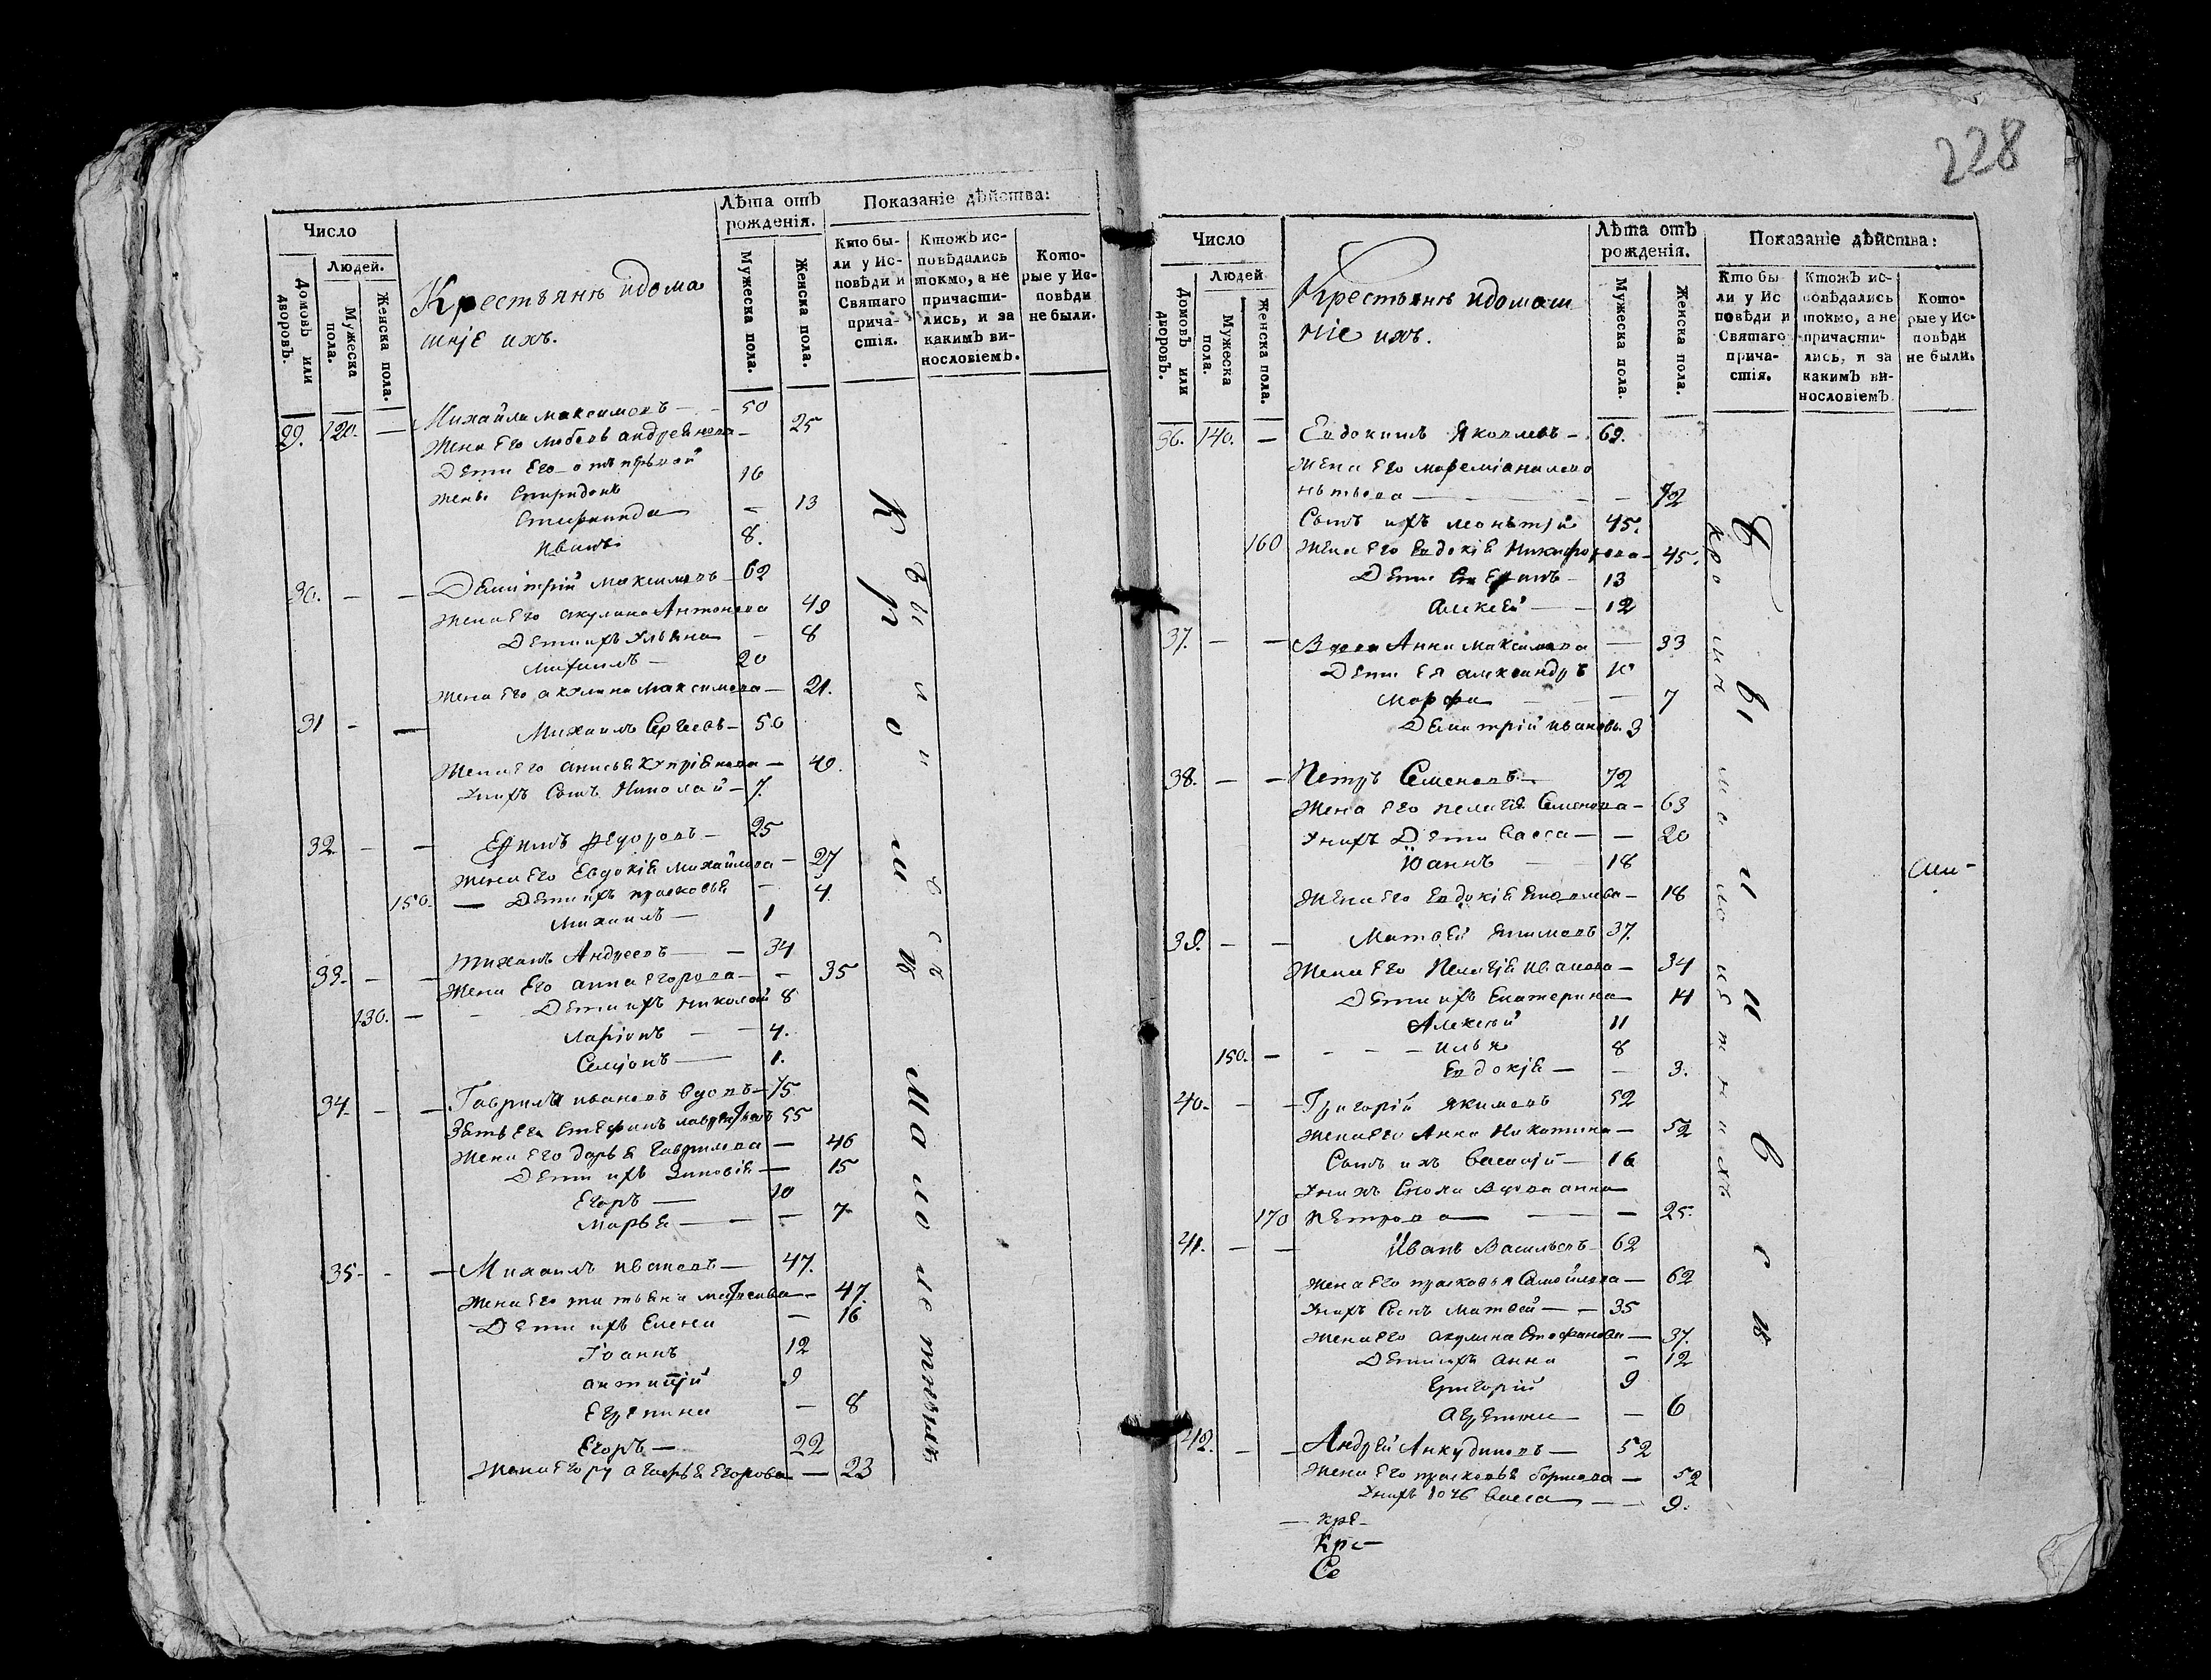 Число
Людей.
Домовъ или дворовъ.
Мужеска пола.
Женска пола.
Крестьянъ идома
шніе ихъ.
Лѣта отъ
рожденія.
Мужеска пола.
Женска пола.
Показаніе дѣйства:
Кто бы-
ли у Ис-
повѣди и
Святаго
прича-
стія.
Ктожъ ис-
повѣдались
токмо, а не
причасти-
лись, и за
какимъ ви-
нословіемъ.
Кото-
рые у Ис-
повѣди
не были.
29. 120. — Михайла Максимовъ — 50
Жена Его Любовь Андреянова — 25
Дети Его от первой
жены Спиридонъ 16
— 13
Иванъ 8.
30. — — Дмитрій Максимовъ — 62
Жена Его Акулина Антонова 49
Дети ихъ Ульяна — 8
Михаилъ — 20
Жена Его Акулина Максимова — 21.
31 — — Михаилъ Сергеевъ — 50
Жена Его Анисья Купріянова — 49.
У нихъ Сынъ Николай — 7.
32. — — Ефимъ Федоровъ — 25
Жена Его Евдокія Михайлова — 27
150. — Дети ихъ Прасковья — 4
Михаилъ — 1
33. — — Тихонъ Андреевъ — 34
Жена Его Анна Егорова — 35
130. — Дети ихъ Николай 8
Ларіонъ — 4.
Семіонъ — 1.
34. — — Гаврила Ивановъ вдовъ — 75
Зять Его Стефанъ 55
Жена Его Дарья Гаврилова — 46
Дети ихъ Зиновія — 15
Егоръ — 10
Марья — 7
35 — — Михаилъ Ивановъ — 47.
Жена Его Татьяна Матвеева — 47.
Дети ихъ Елена — 16
Іоаннъ 12
Антипій 9
— 8
Егоръ — 22
Жена Егору Егорова — 23
228
Число
Людей
Домовъ или дворовъ.
Мужеска пола.
Женска пола.
Крестьянъ идомаш
ніе ихъ.
Лѣта отъ
рожденія.
Мужеска пола.
Женска пола.
Показаніе дѣйства:
Кто бы
ли у Ис
повѣди и
Святаго
прича-
стія.
Ктожъ ис-
повѣдались
токмо, а не
причасти-
лись, и за
какимъ ви-
нословіемъ
Кото-
рые у Ис-
повѣди
не были.
36. 140. — Евдокимъ Яковлевъ — 69.
Жена Его
— 72
Сынъ ихъ Леонтій 45.
160 Жена Его Евдокія Никифорова — 45.
Дети 13
Алексей — 12
37. — — Вдова Анна Максимова — 33
Дети Ея Александръ 10
Марфа — 7
Дмитрій Ивановъ 3
38. — — Петръ Семеновъ — 72
Жена Его Пелагія Семенова — 63
У нихъ Дети Васса — 20
Іоаннъ — 18
Жена Его Евдокія — 18
39. — — Матвей Якимовъ 37.
Жена Его Пелагія Иванова — 34
Дети ихъ Екатерина 14
Алексей 11
150. — Илья 8
Евдокія — 3.
40. — — Григорій Якимовъ 52
Жена Его Анна Никитина — 52
Сынъ ихъ Василій — 16
У нихъ Сноха Вдова Анна
170 Петрова — 25.
41. — — Иванъ Васильевъ 62
Жена Его Прасковья Самойлова — 62
У нихъ Сынъ Матвей — 35
Жена Его Акулина Стефанова — 37.
Дети ихъ Анна — 12
Григорій 9
— 6
42. — — Андрей Анкудиновъ — 52
Жена Его Прасковья Борисова — 52
У нихъ дочь Васса — 9.
— кре-
Кре-
Се